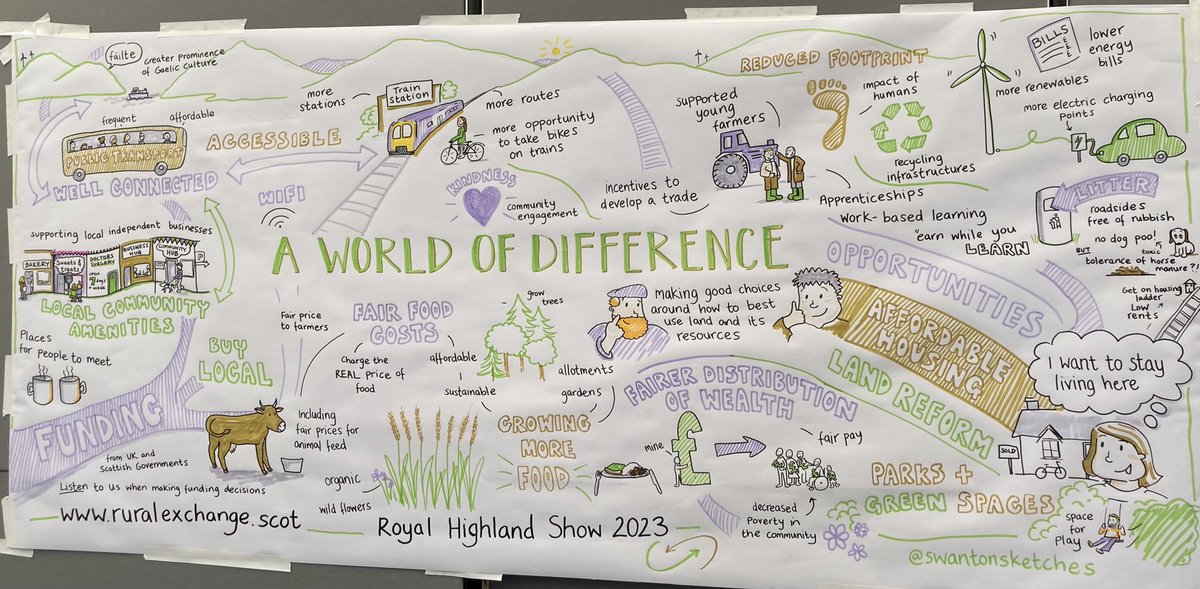 fáilte
greater prominence
of Gaelic culture
frequent
affordable
PUBLIC TRANSPORT
WELL CONNECTED
ACCESSIBLE
WIFI
more
stations
Train
Station
more routes
more opportunity
to take bikes
on trains
KINDNESS
community
engagement
incentives to
develop a trade
supported
young
farmers
REDUCED FOOTPRINT
impact of
humans
recycling
infrastructures
BILLS
lower
energy
bills
more renewables
more electric charging
points
Apprenticeships
work-based learning
"earn while you
LEARN
LITTER
roadsides
free of rubbish
no dog poo!
BUT
toxic
tolerance of horse
manure?!
Get on housing
ladder
Low
rents
supporting local independent businesses
BAKERY
Sweets &
treats
DOCTORS
SURGERY
OPEN
7 days
a WEEK
BUSINESS
HUB
COMMUNITY
HUB
P
LOCAL COMMUNITY
AMENITIES
A WORLD OF DIFFERENCE
OPPORTUNITIES
AFFORDABLE
HOUSING
LAND REFORM
I want to stay
living here
SOLD
Places
for people to meet
BUY
LOCAL
Fair price
to farmers
FAIR FOOD
COSTS
Charge the
REAL price of
food
affordable
sustainable
grow
trees
allotments
gardens
making good choices
around how to best
use land and its
resources
FAIRER DISTRIBUTION
OF WEALTH
FUNDING
from UK and
Scottish Governments
Listen to us when making funding decisions
Including
fair prices for
animal feed
organic
wild flowers
GROWING
MORE
FOOD
mine
£
fair pay
decreased
Poverty in
the community
PARKS +
GREEN SPACES
space
for
play
www.ruralexchange.scot
Royal Highland Show 2023
@swantonsketches